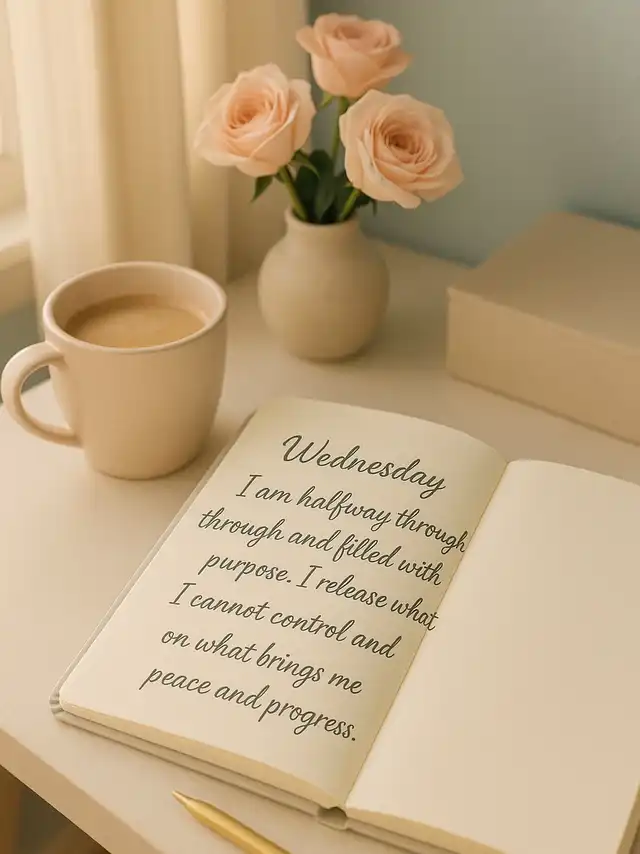 Wednesday
I am halfway through
through and filled with
purpose. I release what
I cannot control and
on what brings me
peace and progress.